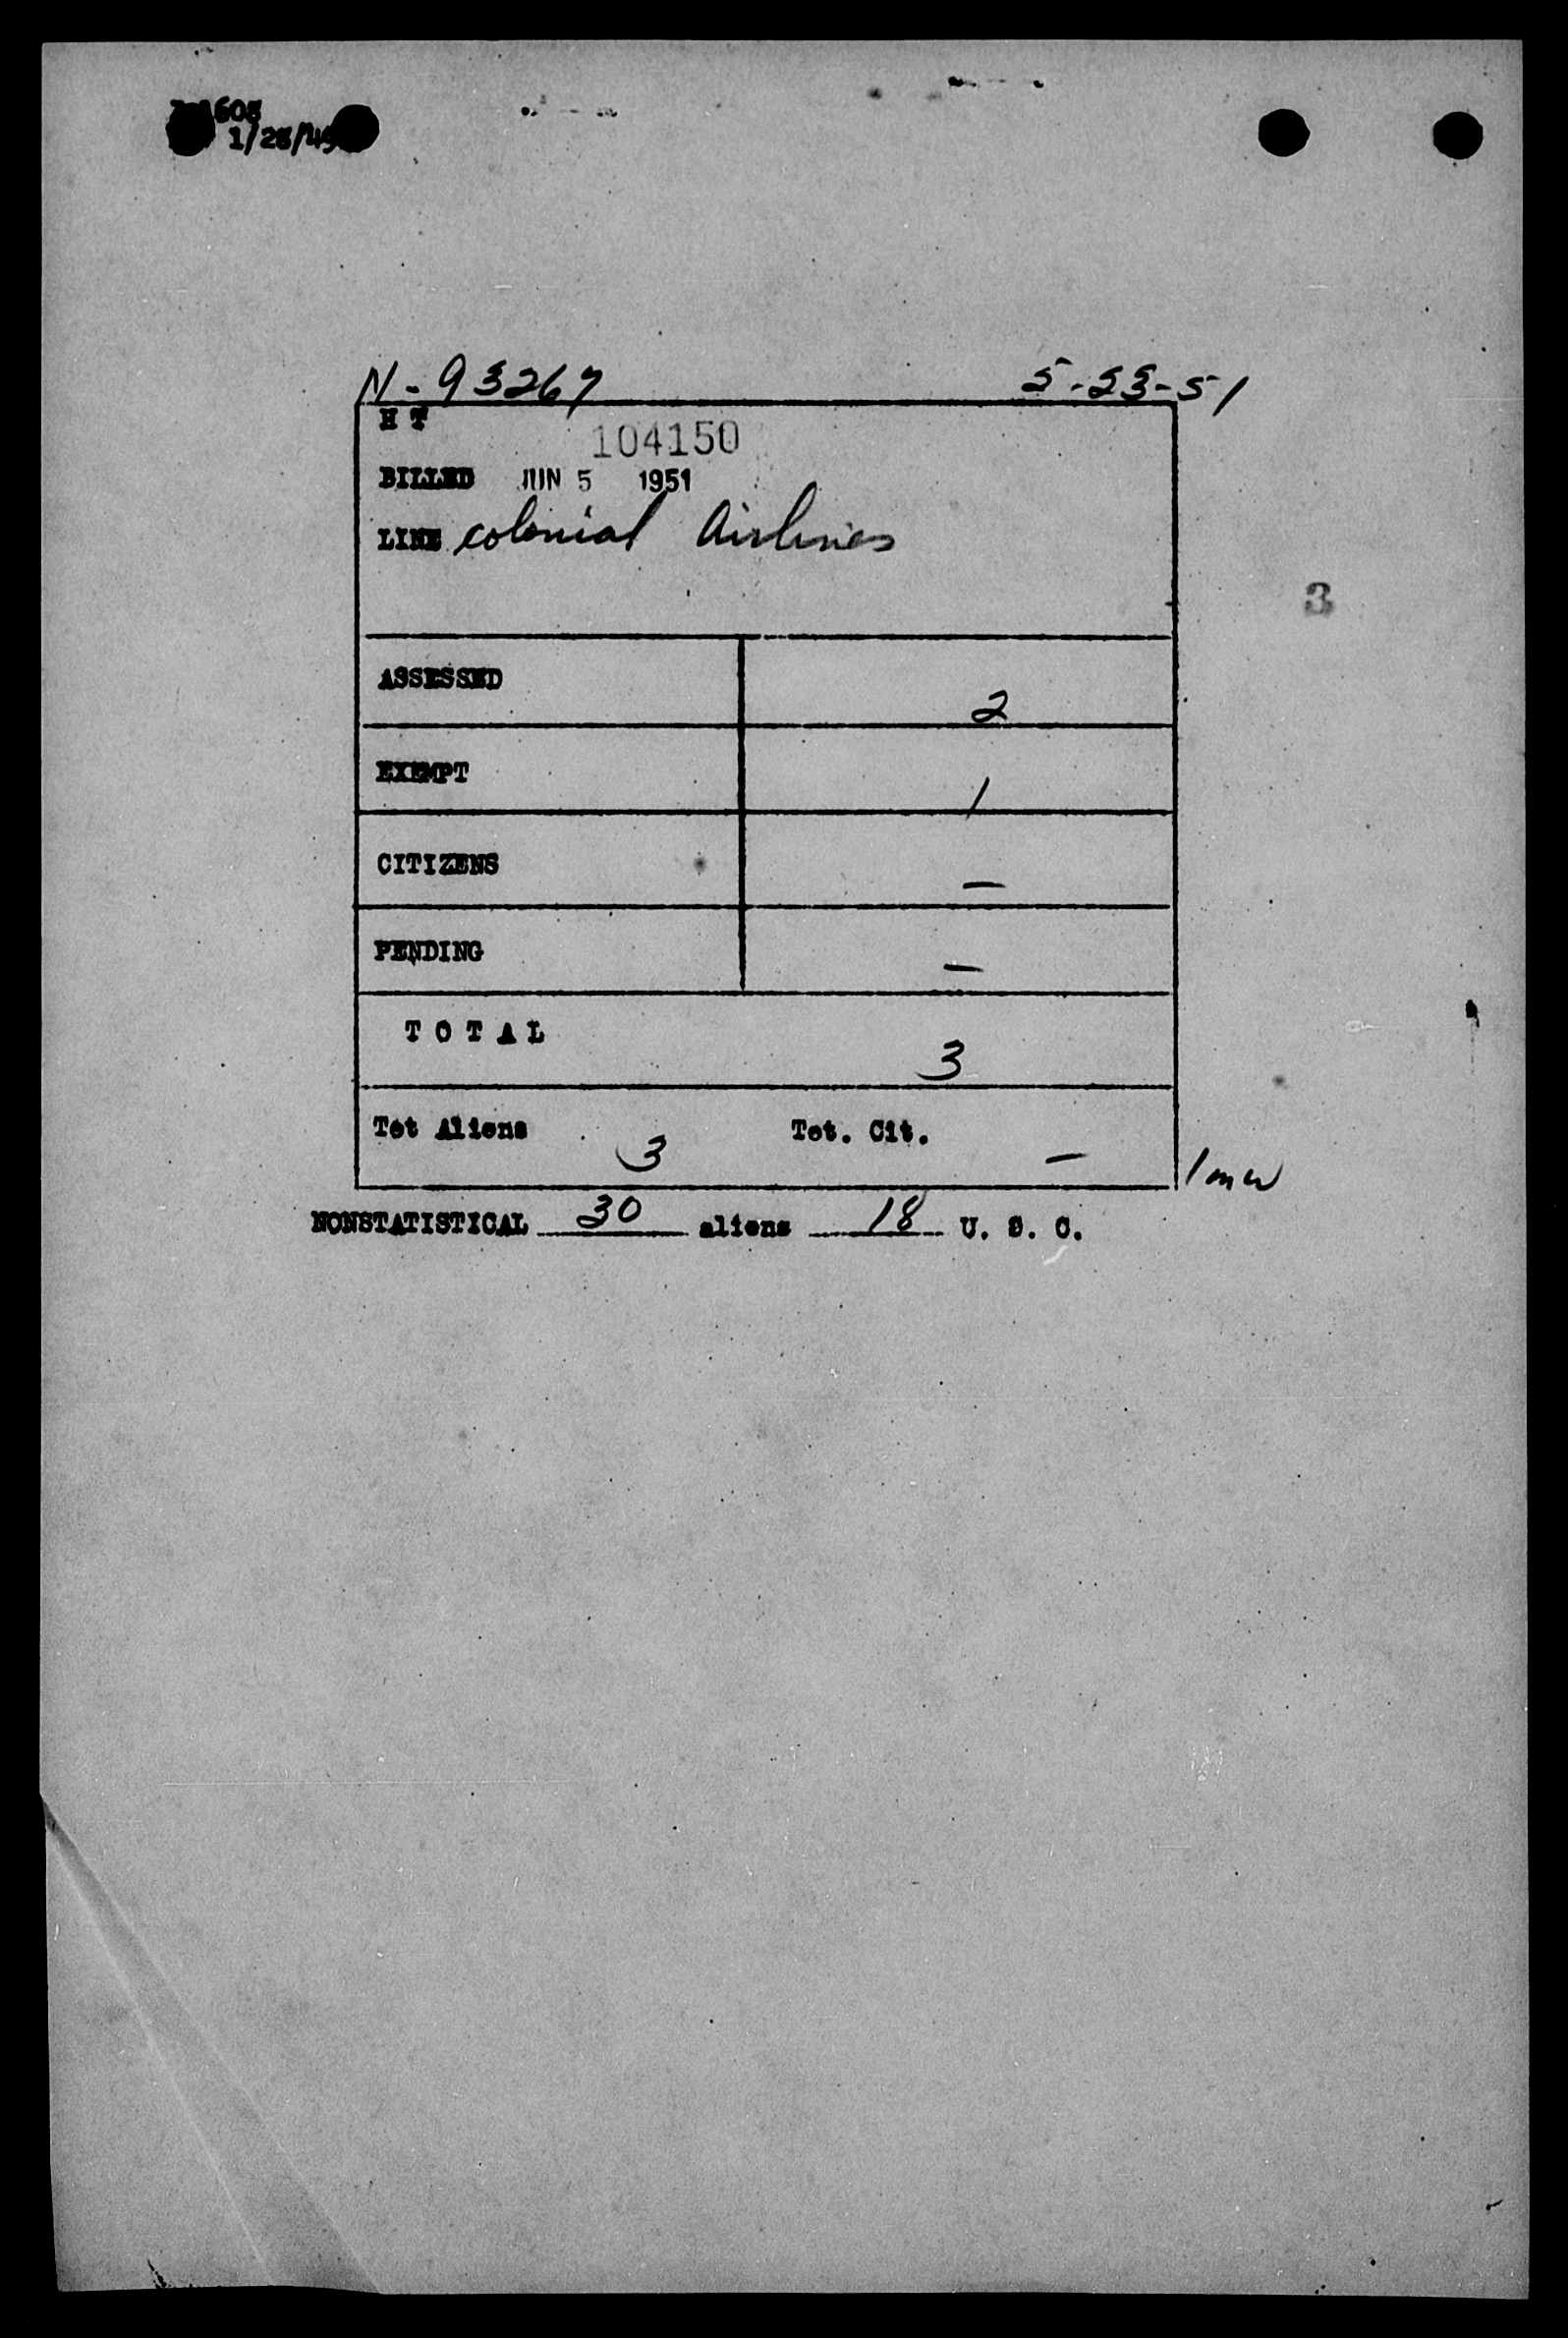 608
1/28/49
N-93267 5-23-51
H T
104150
BILLED JUN 5 1951
LINE colonial Airlines
3
ASSESSED 2
EXEMPT 1
CITIZENS —
PENDING —
T O T A L 3
Tot Aliens 3 Tot. Cit. —
NONSTATISTICAL 30 aliens 18 U. S. C.